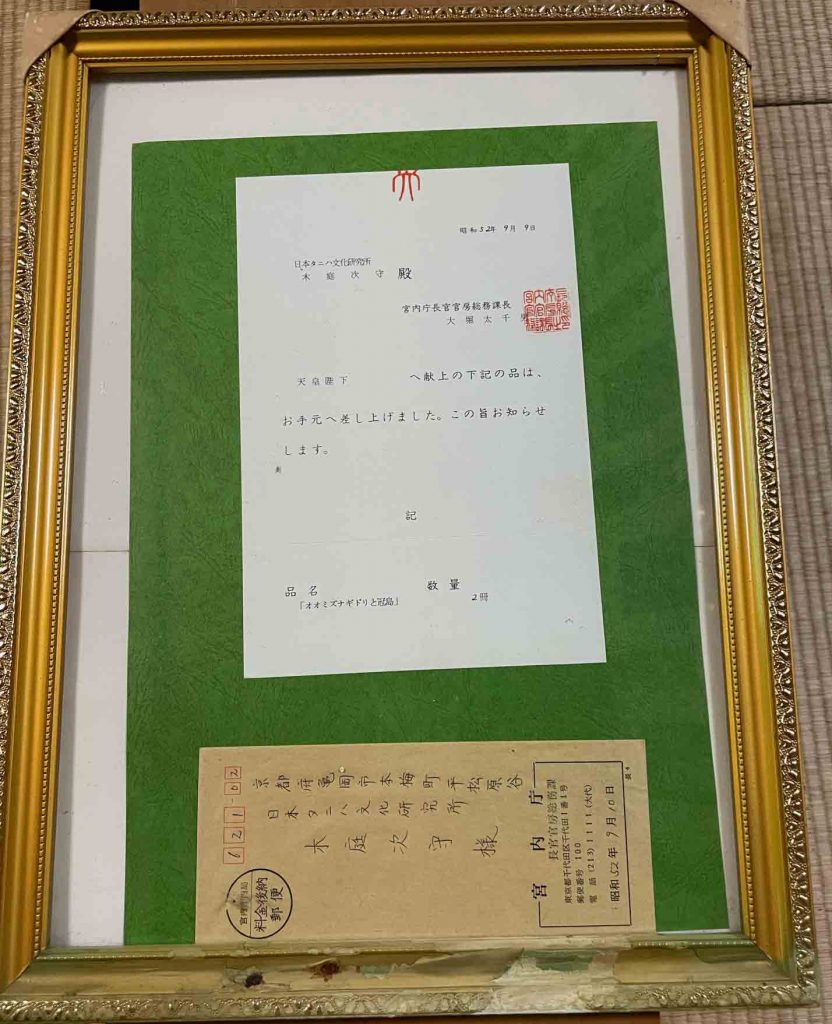 昭和52年9月9日
日本タニハ文化研究所
木庭次守 殿
宮内庁長官官房総務課長
大堀太千男
天皇陛下 へ献上の下記の品は、
お手元へ差し上げました。この旨お知らせ
します。
記
品名 数量
「オオミズナギドリと冠島」 2冊
621-02
京都府亀岡市本梅町平松原谷
日本タニハ文化研究所
木庭次守様
料金後納
郵便
宮内庁
長官官房総務課
東京都千代田区千代田1番1号
郵便番号 100
電話 (213) 1111 (大代)
昭和52年9月10日